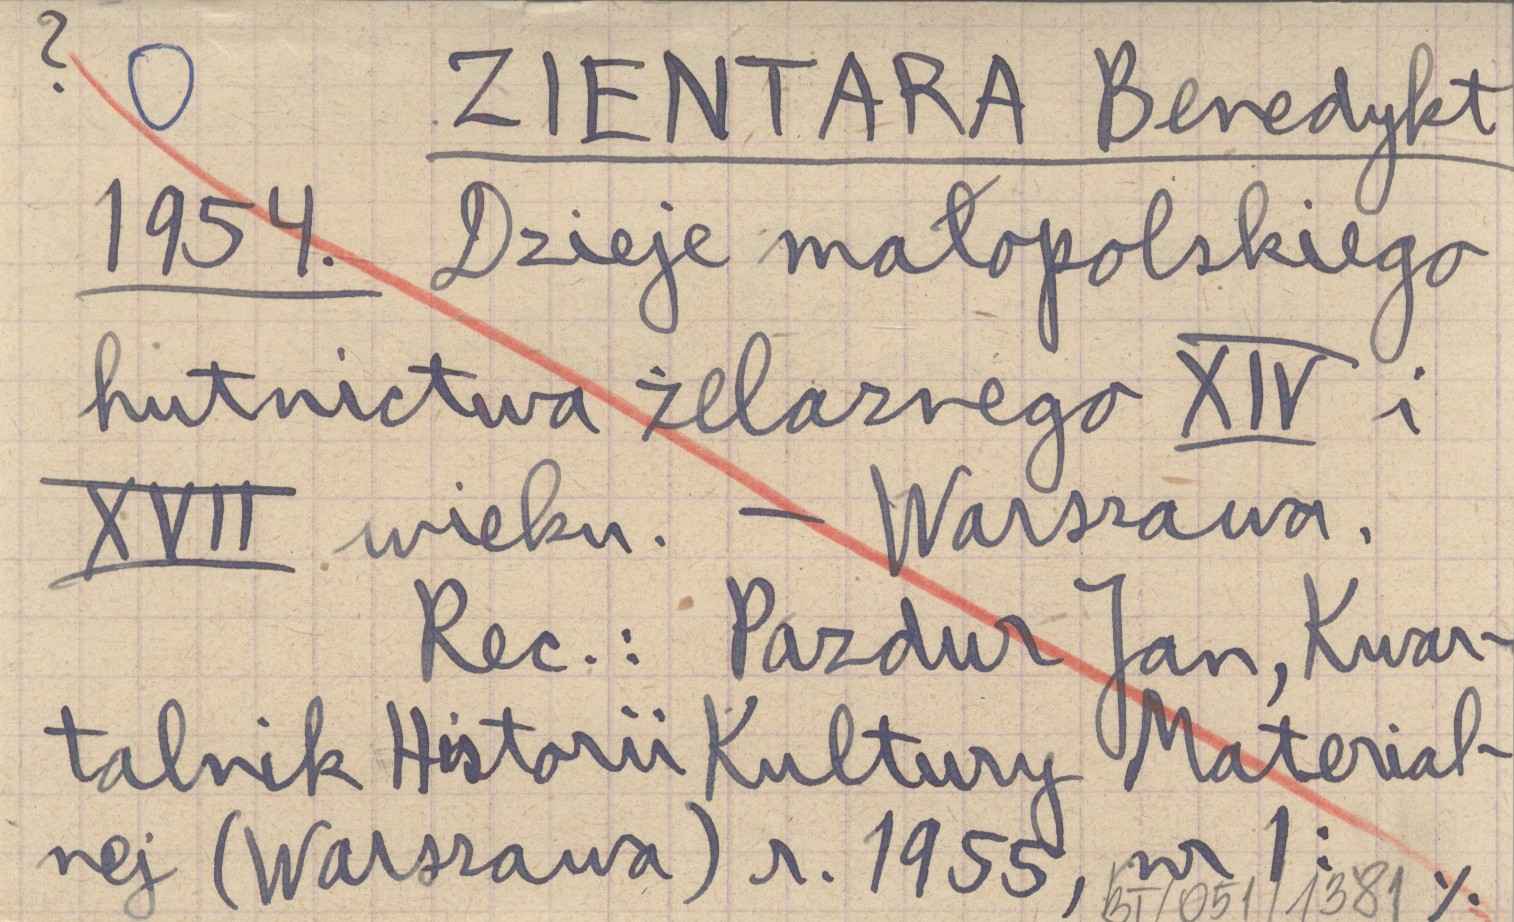 ? O ZIENTARA Benedykt
1954. Dzieje małopolskiego
hutnictwa żelaznego XIV i
XVII wieku. – Warszawa.
Rec.: Pazdur Jan, Kwar-
talnik Historii Kultury Material-
nej (Warszawa) r. 1955, nr 1; ./.
BT/051/1381